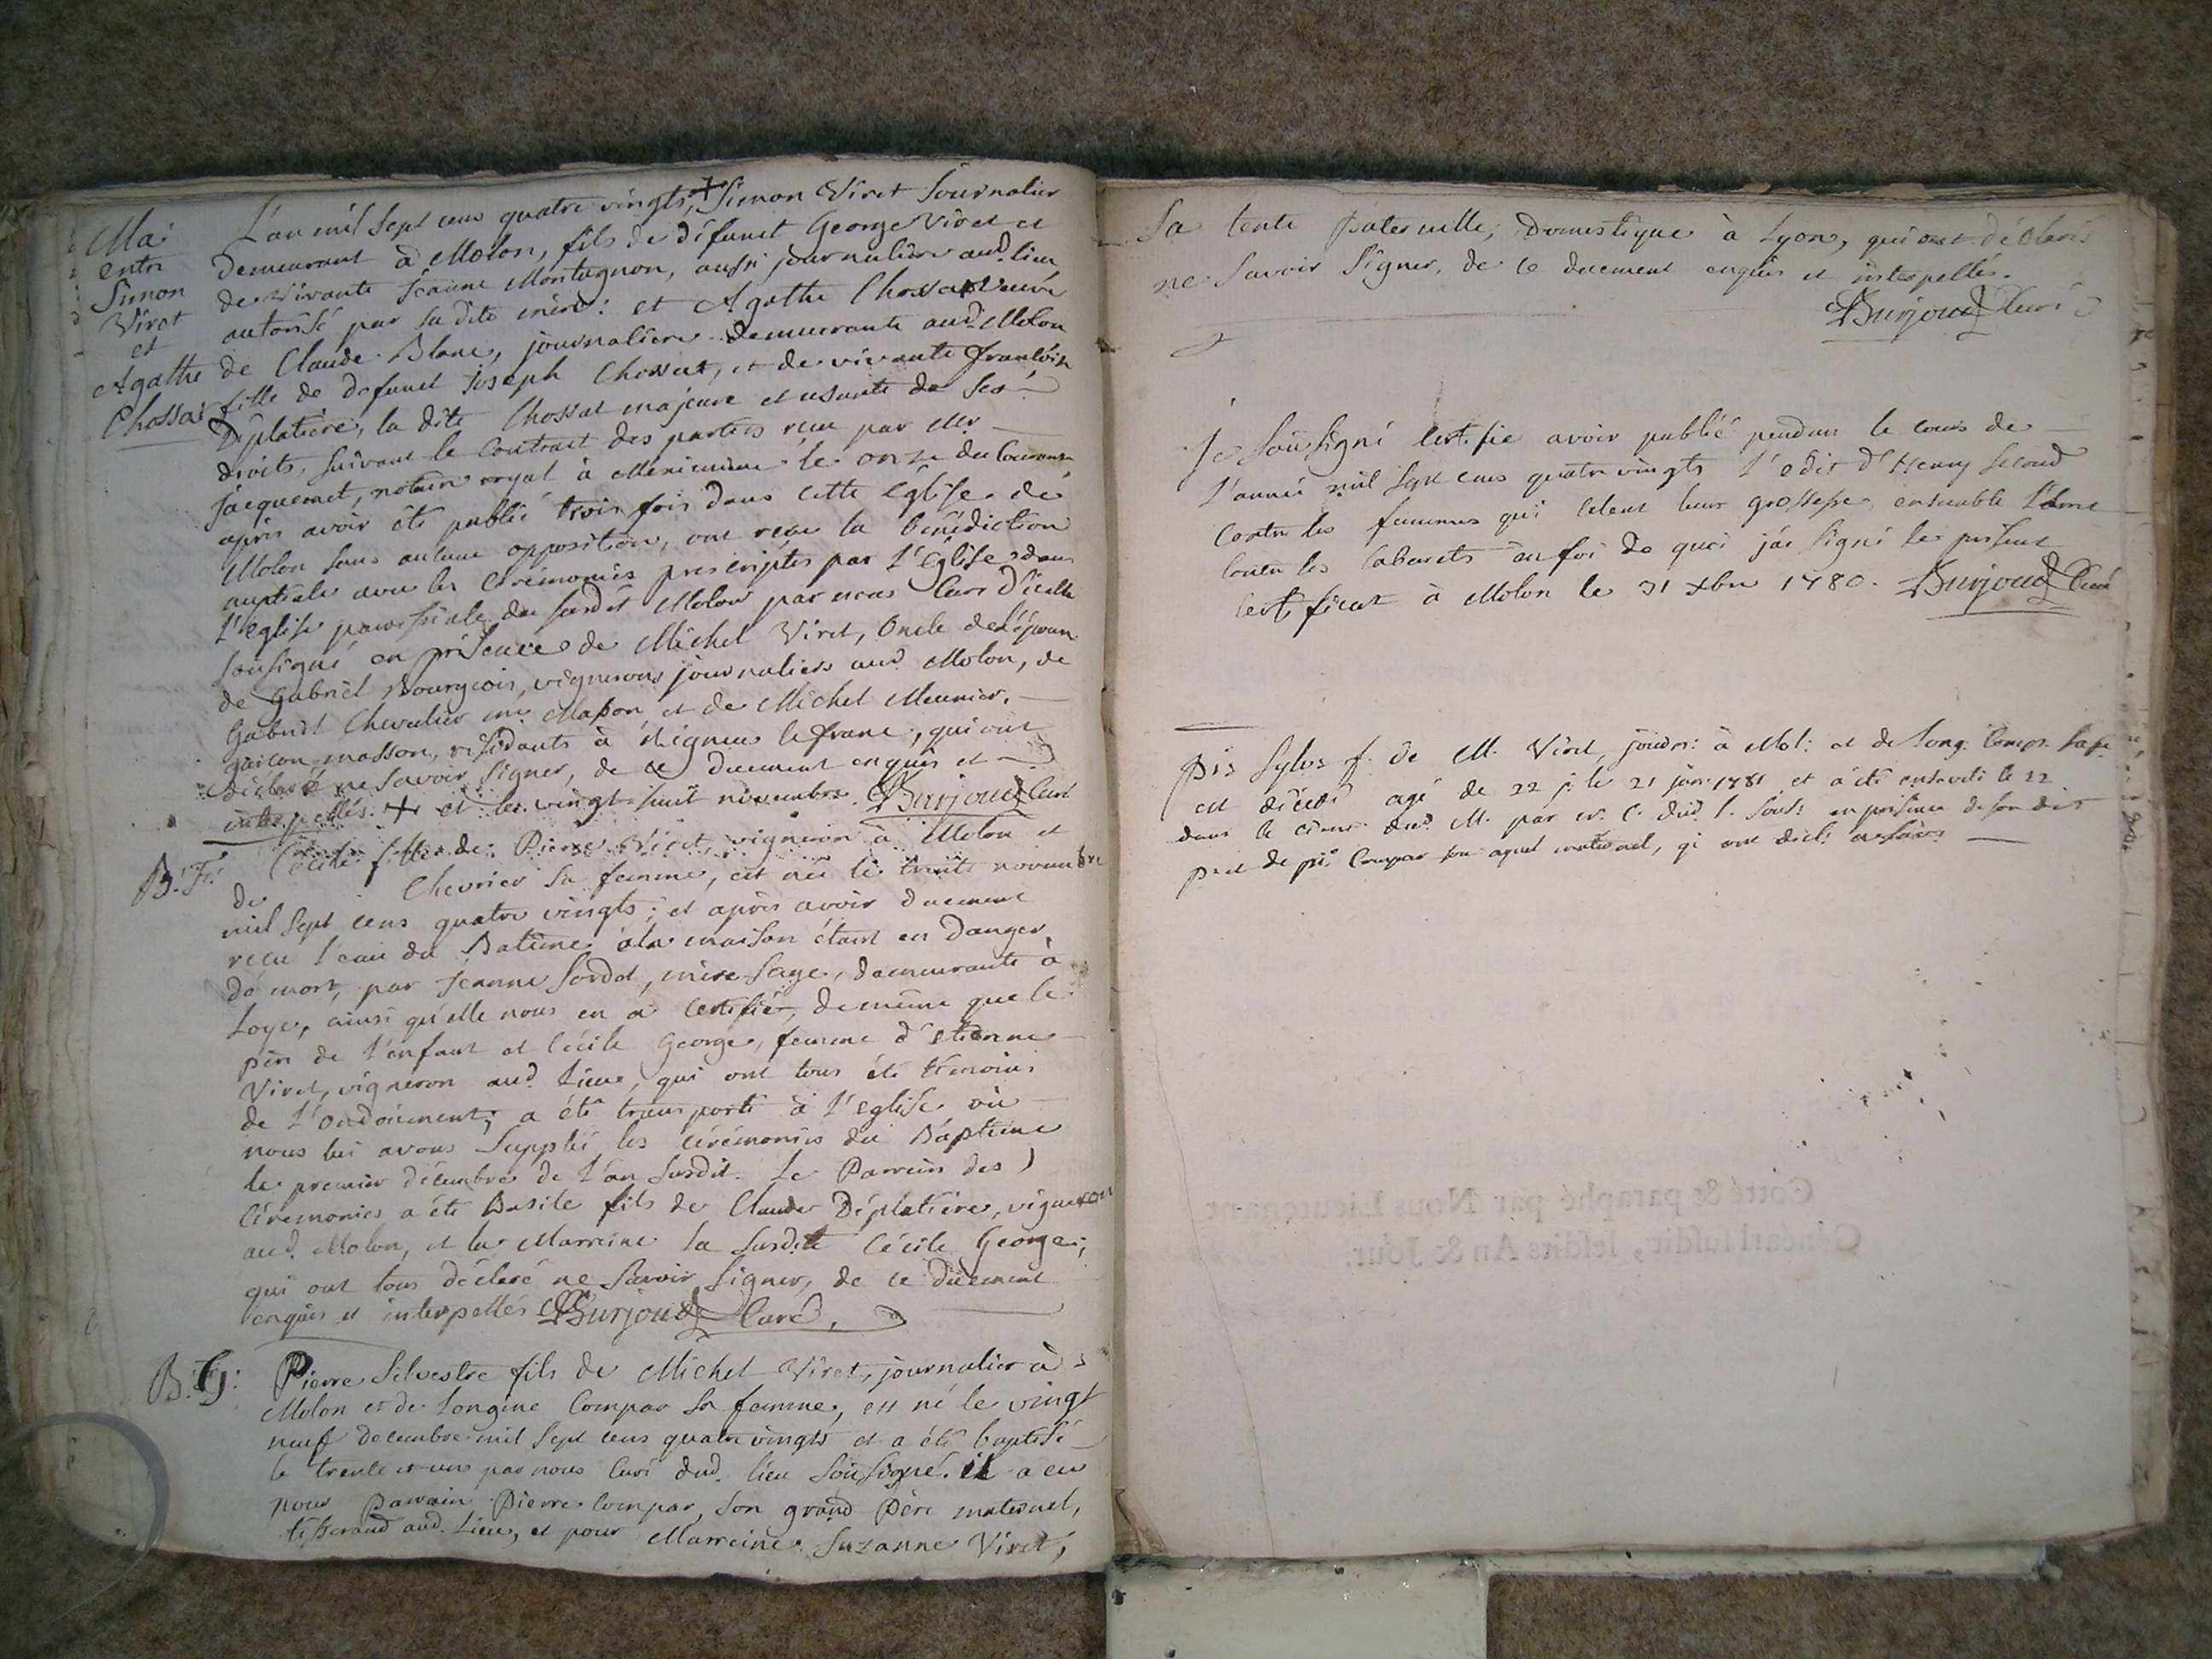 Ma:
entre
Simon
Viret
et
Agathe
Chossat
L'an mil sept cens quatre vingts, + Simon Viret journalier
demeurant à Molon, fils de défunct George Viret et
de vivante Jeanne Montagnon, aussi journaliere aud. lieu
autorisé par sa dite mère: et Agathe Chossat veuve
de Claude Blanc, journaliere demeurante aud. Molon
fille de defunct Joseph Chossat, et de vivante françoise
Déplatière, la dite Chossat majeure et usante de ses
droits, suivant le Contract des parties reçu par Me
Jacquemet, notaire royal à Meximieux le onze du courant
après avoir été publié trois fois dans cette Eglise de
Molon sans aucune opposition, ont reçu la bénédiction
nuptiale avec les cérémonies prescriptes par l'Eglise dans
l'Eglise paroissiale du susdit Molon par nous Curé d'icelle
sousigné en présence de Michel Viret, Oncle de l'époux
de Gabriel Bourgeois, vignerons journaliers aud. Molon, de
Gabriel Chevalier me Masson, et de Michel Meunier,
garçon masson, résidants à Rigneu le franc, qui ont
déclaré ne savoir signer, de ce duement enquis et
interpellés. + et le vingt huit novembre. Burjoud Curé
B. F. Cécile fille de Pierre Viret, vigneron à Molon et
de Chevrier sa femme, est née le trente novembre
mil sept cens quatre vingts; et après avoir duement
reçu l'eau du Batême à la maison étant en danger
de mort, par Jeanne Sordet, mère sage, demeurante à
Loye, ainsi qu'elle nous en a certifié, de même que le
père de l'enfant et Cécile George, femme d'Etienne
Viret, vigneron aud. lieu, qui ont tous été témoins
de l'ondoiement; a été transporté à l'eglise où
nous lui avons supplée les cérémonies du Baptême
le premier décembre de l'an susdit. Le Parrein des
Cérémonies a été Basile fils de Claude Déplatière, vigneron
aud. Molon, et la Marreine la susdite Cécile George;
qui ont tous déclaré ne savoir signer, de ce duement
enquis et interpellés Burjoud Curé.
B. G: Pierre Silvestre fils de Michel Viret, journalier à
Molon et de Longine Compar sa femme, est né le vingt
neuf decembre mil sept cens quatre vingts et a été baptisé
le trente et un par nous Curé dud. lieu sousigné. il a eu
pour Parrain Pierre Compar, son grand Père maternel,
tisserand aud. lieu, et pour Marreine Suzanne Viret,
sa tente paternelle, domestique à Lyon, qui ont déclarés
ne savoir signer, de ce duement enquis et interpellés.
Burjoud Curé
Je sousigné certifie avoir publié pendant le cours de
l'année mil sept cens quatre vingts l'edit d'Henry second
contre les femmes qui celent leur grossesse, ensemble
contre les cabarets en foi de quoi j'ai signé le présent
certificat à Molon le 31 Xbre 1780. Burjoud Curé
Pie Sylve f. de M. Viret, journ: à Mol: et de Long. Comp. sa fe.
est décédé agé de 22 j. le 21 janv. 1781 et a été enseveli le 22
dans le cime. dud. M. par n. C. dud. l. sous: en présence de son dit
père de Compar son ayeul maternel, qi ont decl: ne savoir
Cotté & paraphé par Nous Lieutenant
Général susdit, lesdits An & Jour.